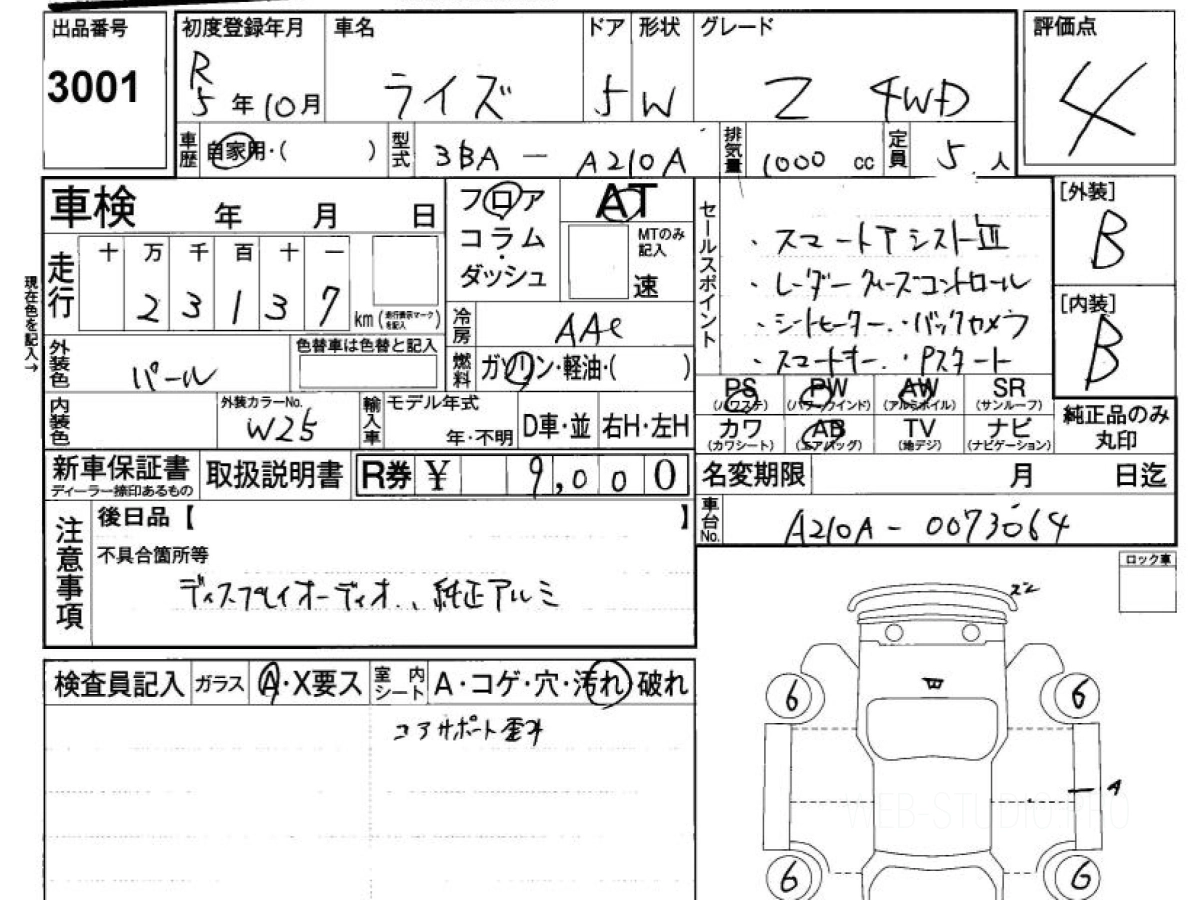 出品番号 初度登録年月 車名 ドア 形状 グレード 評価点
3001 R5年10月 ライズ 5 W Z 4WD 4
車歴 自家用・( ) 型式 3BA-A210A 排気量 1000cc 定員 5人
車検 年 月 日 フロア AT セールスポイント [外装]
コラム MTのみ記入 ・スマートアシストⅢ B
ダッシュ 速 ・レーダークルーズコントロール
走行 十 万 千 百 十 一
2 3 1 3 7 km(走行表示マークを記入)
現在色を記入→
冷房 AAC ・シートヒーター・バックカメラ [内装]
・スマートキー・Pスタート B
外装色 パール 色替車は色替と記入 燃料 ガソリン・軽油・( )
PS(パワステ) PW(パワーウインド) AW(アルミホイル) SR(サンルーフ)
カワ(カワシート) AB(エアバッグ) TV(地デジ) ナビ(ナビゲーション) 純正品のみ丸印
内装色 外装カラーNo. W25 輸入車 モデル年式 年・不明 D車・並 右H・左H
新車保証書 ディーラー捺印あるもの 取扱説明書 R券 ¥ 9,000 名変期限 月 日迄
車台No. A210A-0073064
注意事項 後日品【 】
不具合箇所等
ディスプレイオーディオ、純正アルミ
ロック車
検査員記入 ガラス A・X要ス 室内シート A・コゲ・穴・汚れ・破れ
コアサポート
W
6 6
A
WEB-STUDIO.PRO
6 6